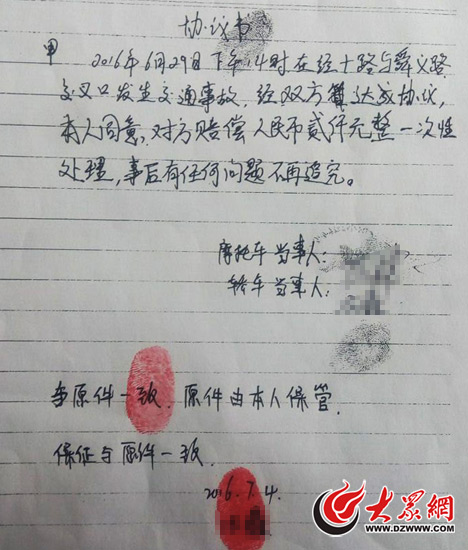 协议书
甲 2016年6月29日下午14时在经十路与舜义路
交叉口发生交通事故,经双方 达成协议,
本人同意,对方赔偿人民币贰仟元整一次性
处理,事后有任何问题不再追究。
摩托车当事人:
轿车当事人:
与原件一致.原件由本人保管.
保证与原件一致.
2016.7.4.
大众网
WWW.DZWWW.COM